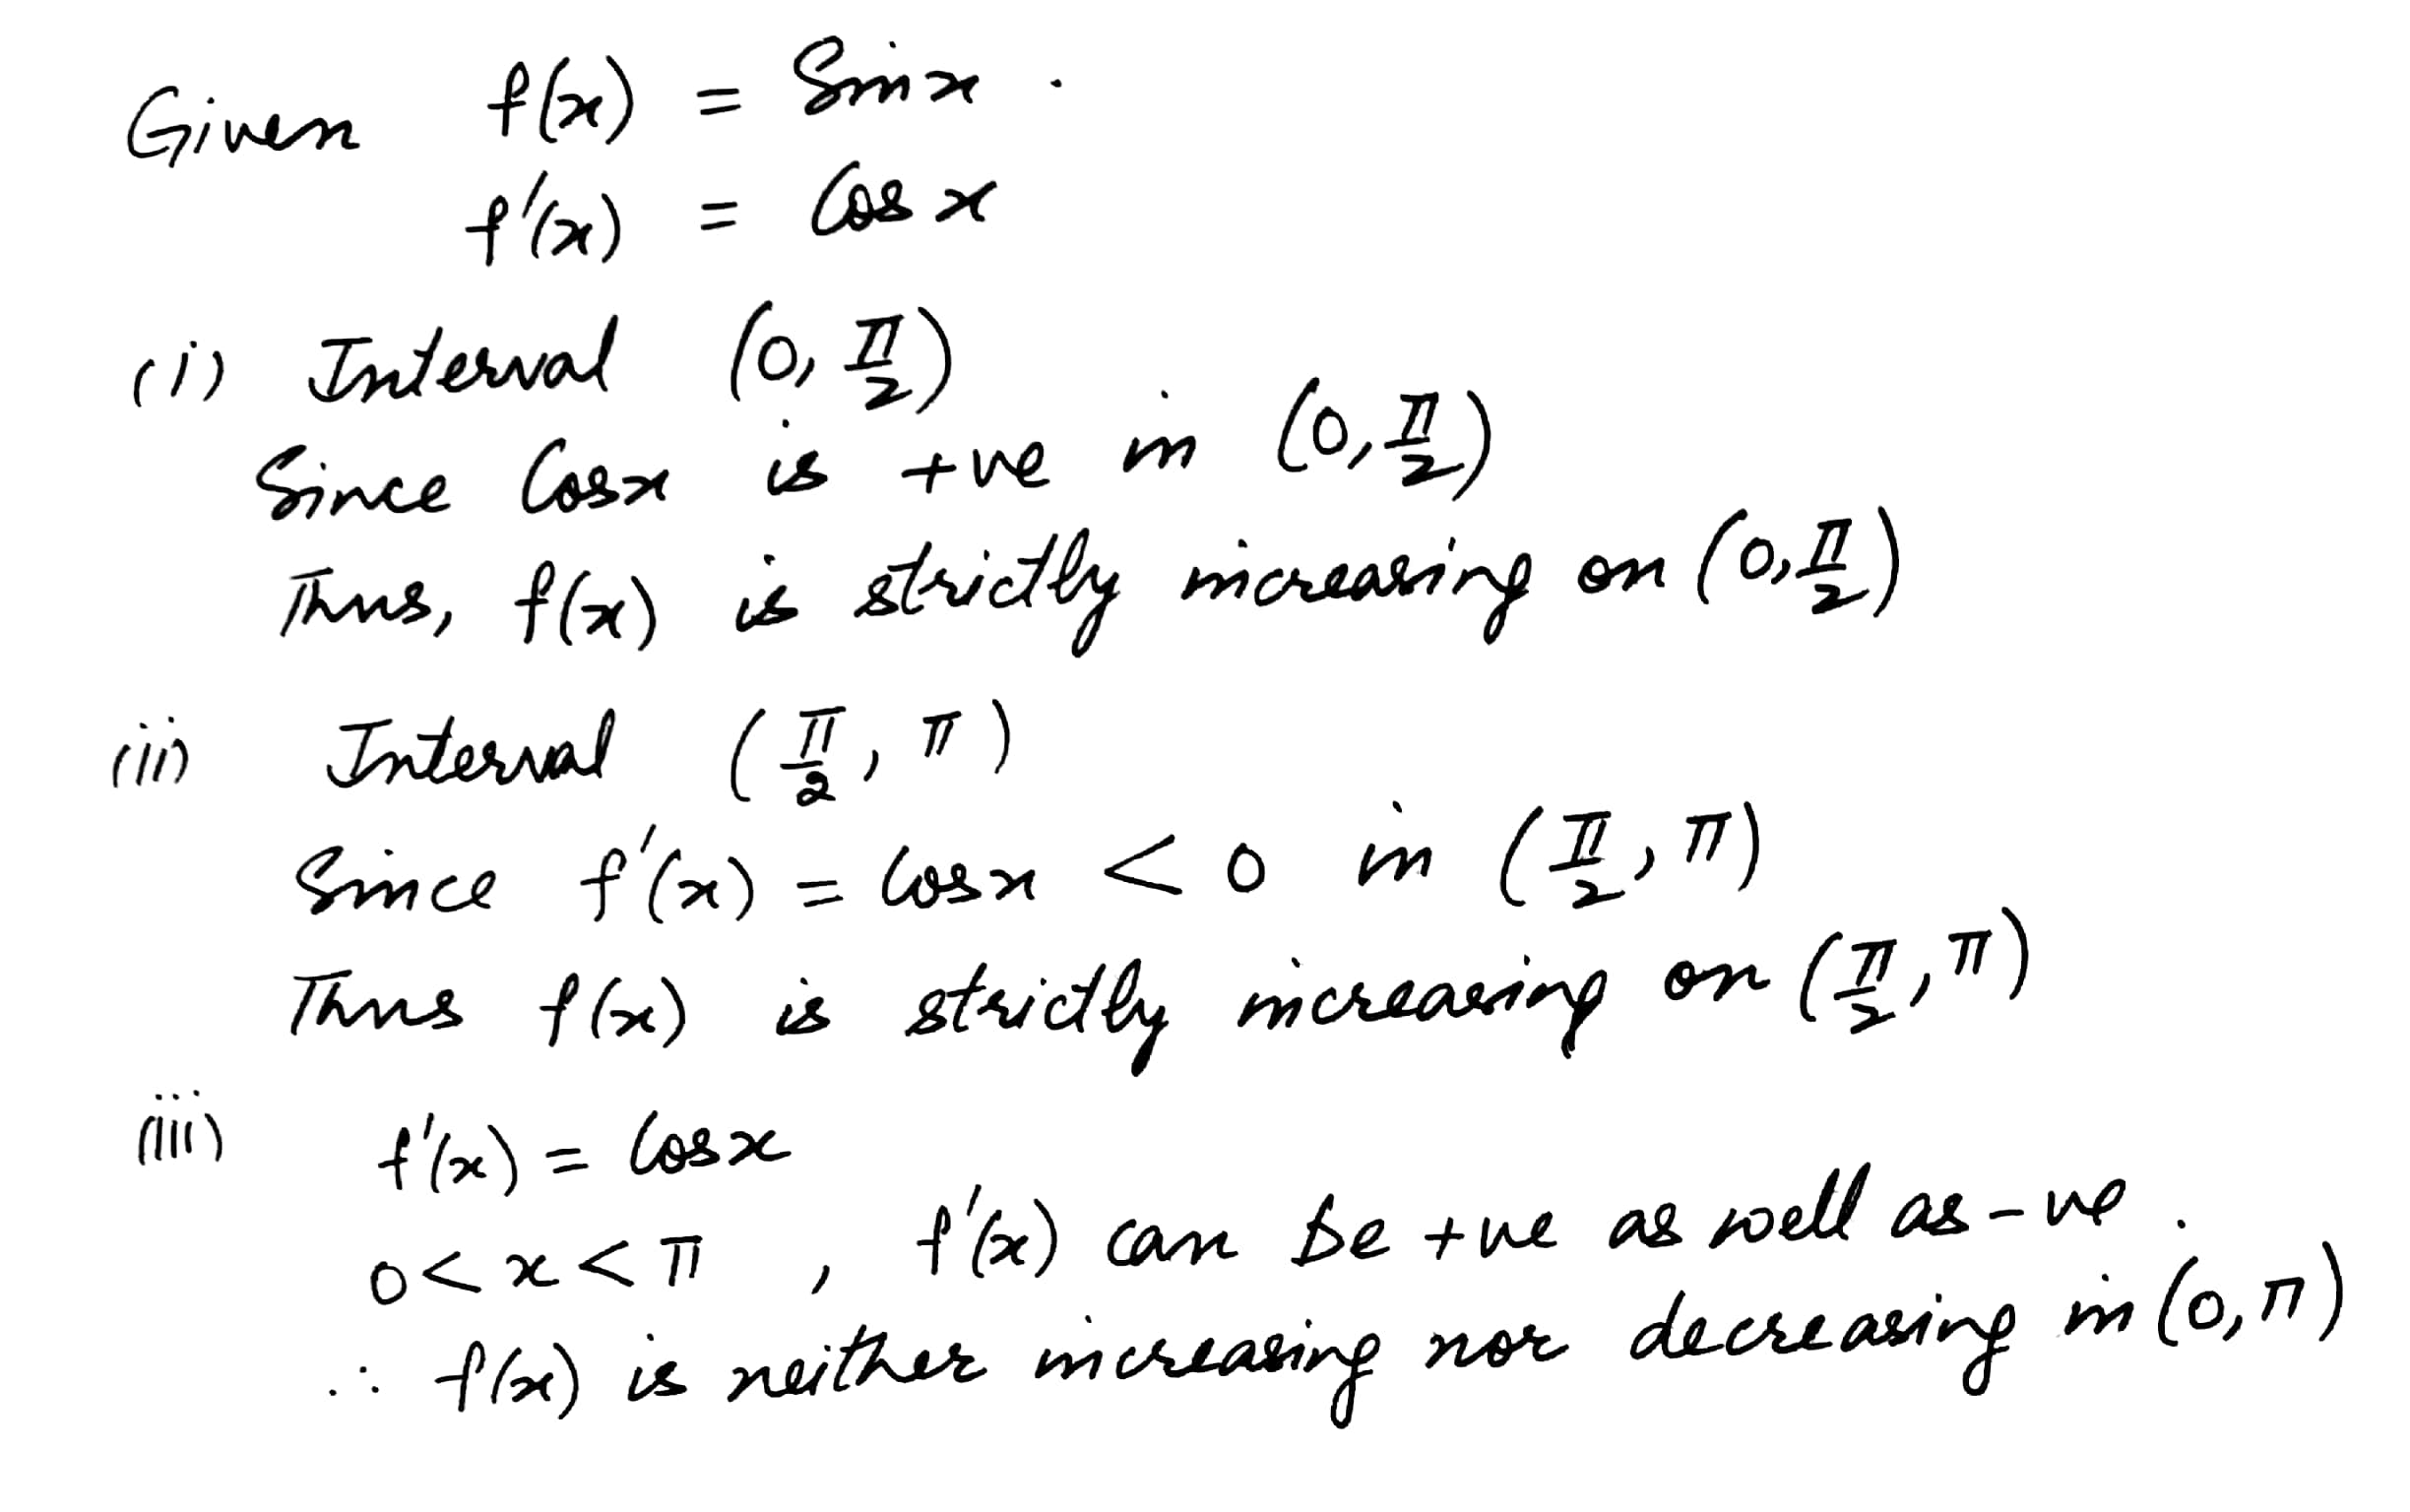 Given f(x) = Sin x.
f'(x) = Cos x
(i) Interval (0, π/2)
Since Cosx is +ve in (0, π/2)
Thus, f(x) is strictly increasing on (0, π/2)
(ii) Interval (π/2, π)
Since f'(x) = Cosx < 0 in (π/2, π)
Thus f(x) is strictly increasing on (π/2, π)
(iii) f'(x) = Cosx
0 < x < π, f'(x) can be +ve as well as -ve.
∴ f(x) is neither increasing nor decreasing in (0, π)